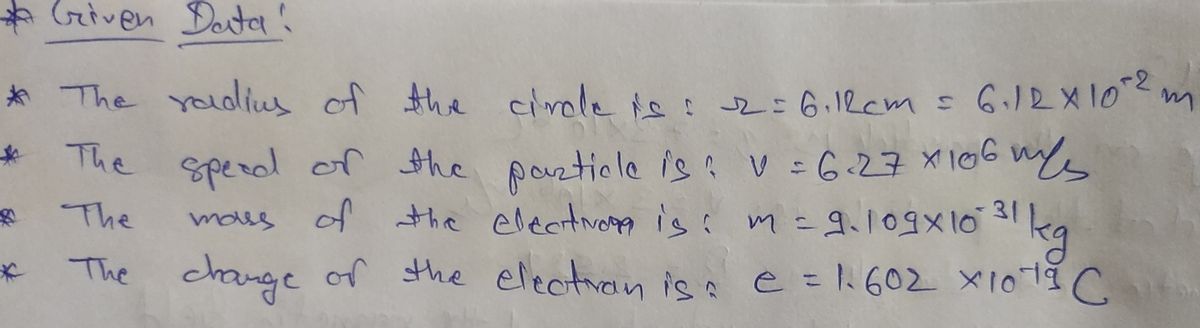 * Given Data:
* The radius of the circle is : r = 6.12cm = 6.12 × 10⁻² m
* The speed of the particle is : v = 6.27 × 10⁶ m/s
* The mass of the electron is : m = 9.109 × 10⁻³¹ kg
* The charge of the electron is : e = 1.602 × 10⁻¹⁹ C